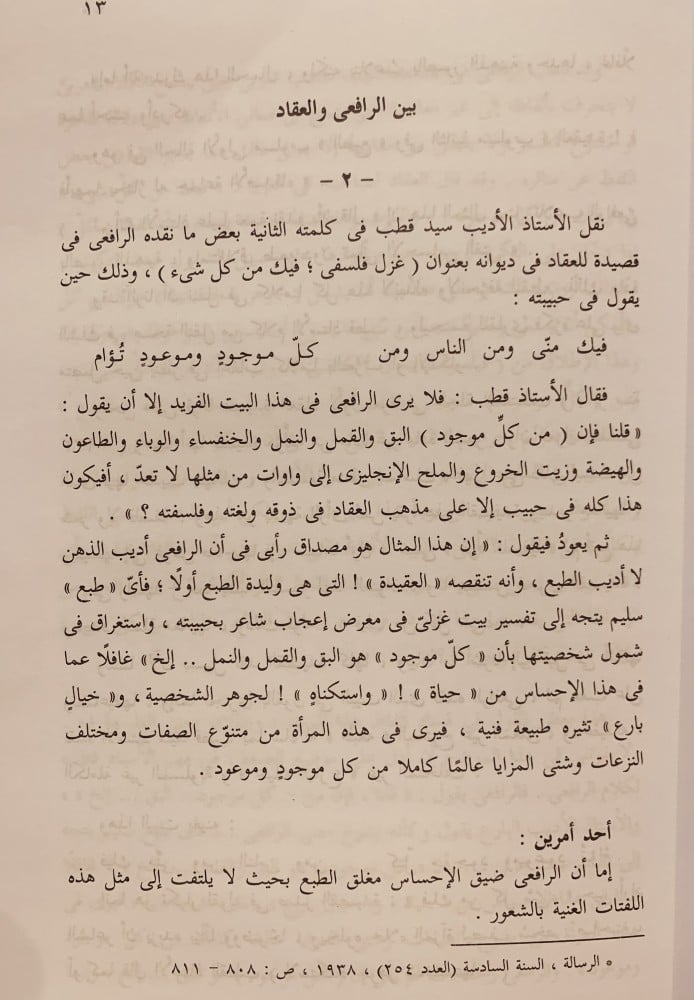 ١٣
بين الرافعى والعقاد
– ٢ –
نقل الأستاذ الأديب سيد قطب فى كلمته الثانية بعض ما نقده الرافعى فى
قصيدة للعقاد فى ديوانه بعنوان ( غزل فلسفى ؛ فيك من كل شىء ) ، وذلك حين
يقول فى حبيبته :
فيك منّى ومن الناس ومن كلّ موجودٍ وموعودٍ تُؤام
فقال الأستاذ قطب : فلا يرى الرافعى فى هذا البيت الفريد إلا أن يقول :
« قلنا فإن ( من كلِّ موجود ) البق والقمل والنمل والخنفساء والوباء والطاعون
والهيضة وزيت الخروع والملح الإنجليزى إلى واوات من مثلها لا تعدّ ، أفيكون
هذا كله فى حبيب إلا على مذهب العقاد فى ذوقه ولغته وفلسفته ؟ » .
ثم يعودُ فيقول : « إن هذا المثال هو مصداق رأيى فى أن الرافعى أديب الذهن
لا أديب الطبع ، وأنه تنقصه « العقيدة » ! التى هى وليدة الطبع أولًا ؛ فأىّ « طبع »
سليم يتجه إلى تفسير بيت غزلىّ فى معرض إعجاب شاعر بحبيبته ، واستغراق فى
شمول شخصيتها بأن « كلّ موجود » هو البق والقمل والنمل .. إلخ » غافلًا عما
فى هذا الإحساس من « حياة » ! « واستكناهٍ » ! لجوهر الشخصية ، و« خيالٍ
بارع » تثيره طبيعة فنية ، فيرى فى هذه المرأة من متنوّع الصفات ومختلف
النزعات وشتى المزايا عالمًا كاملا من كل موجودٍ وموعود .
أحد أمرين :
إما أن الرافعى ضيق الإحساس مغلق الطبع بحيث لا يلتفت إلى مثل هذه
اللفتات الغنية بالشعور .
* الرسالة ، السنة السادسة (العدد ٢٥٤) ، ١٩٣٨ ، ص : ٨٠٨ – ٨١١